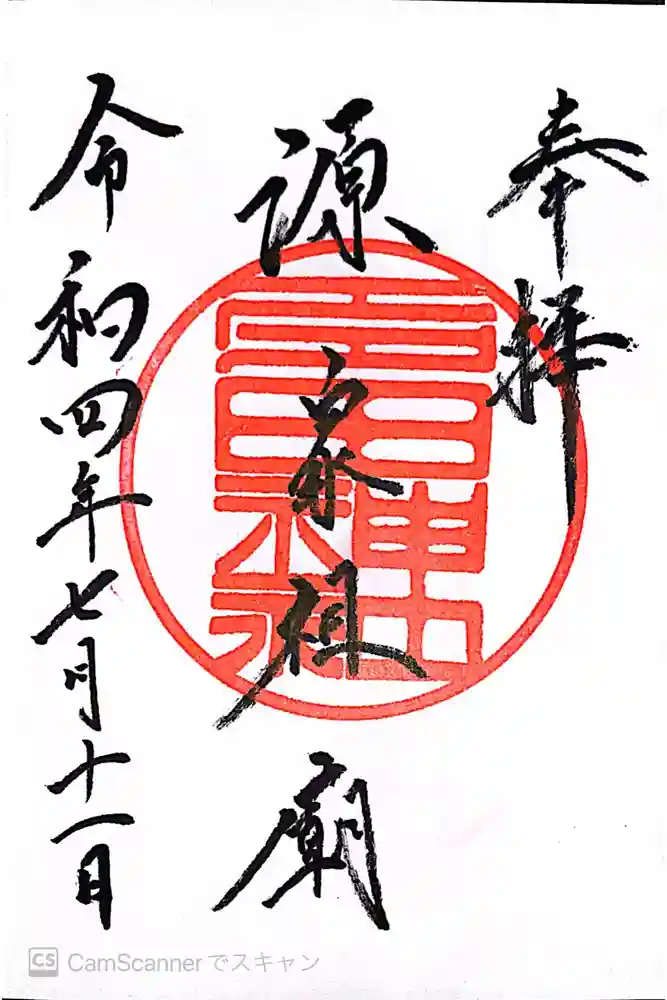 奉拝
源家祖廟
令和四年七月十一日
CS CamScanner でスキャン